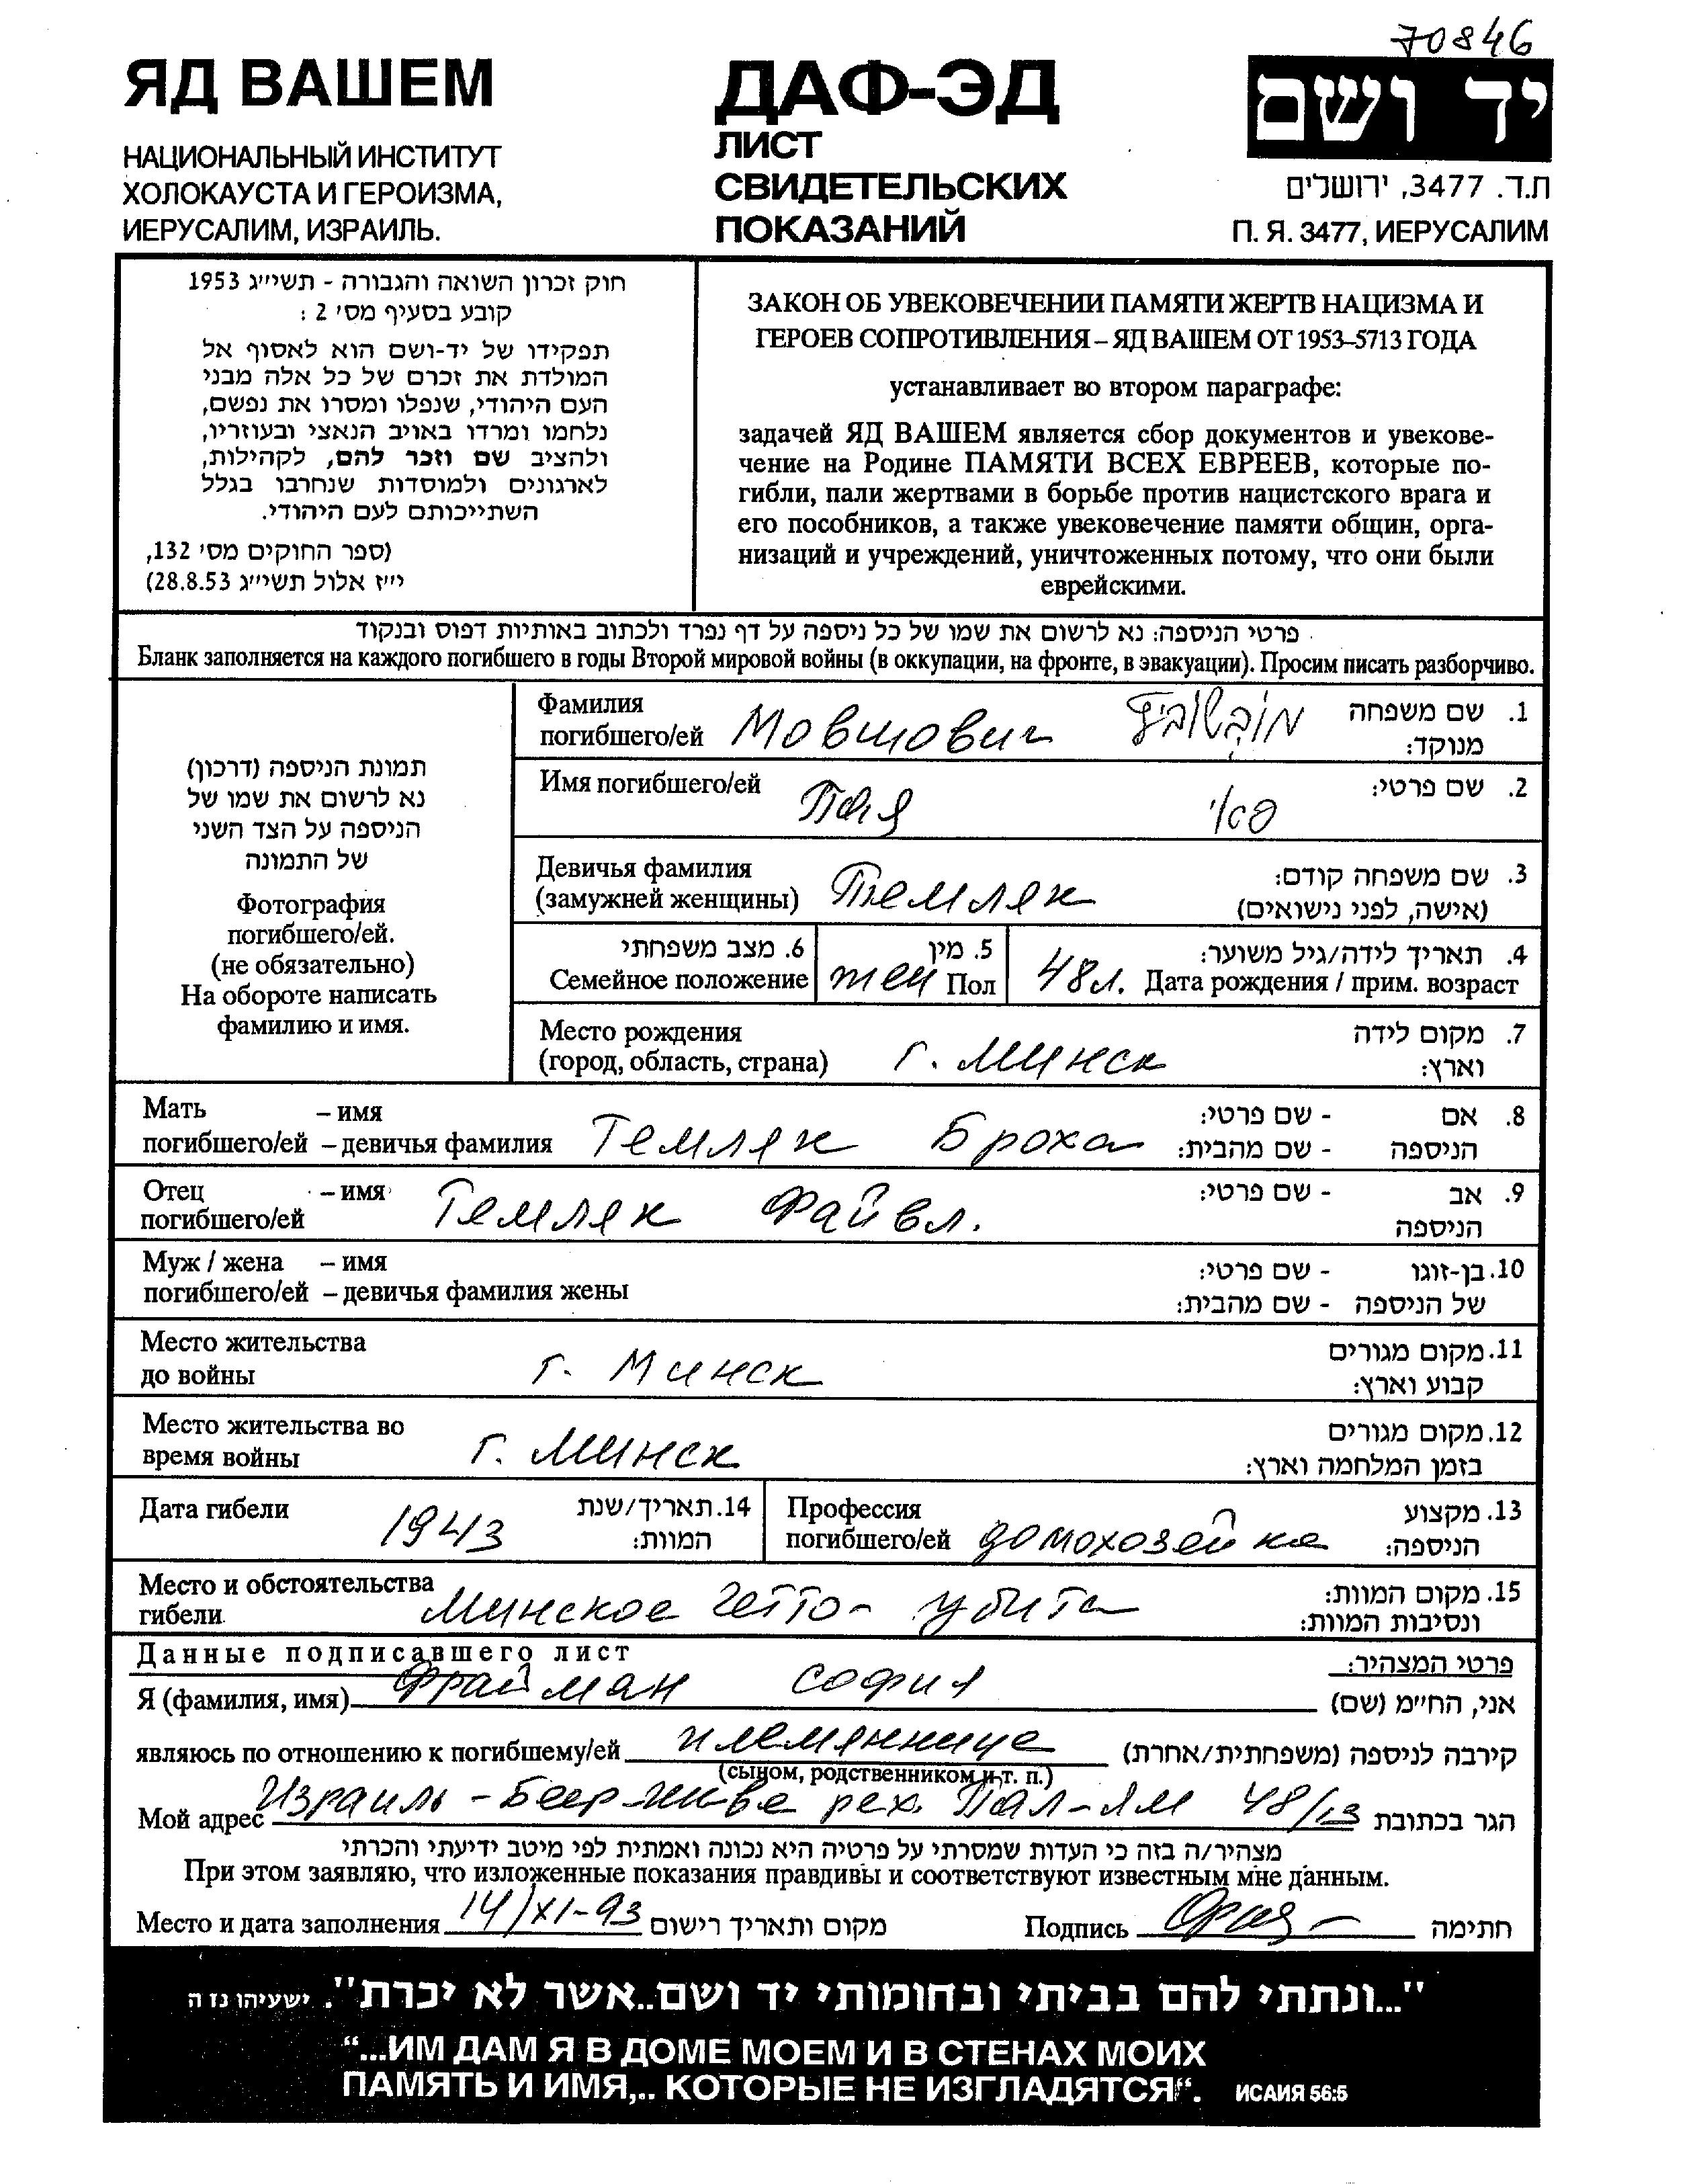 70846
ЯД ВАШЕМ
НАЦИОНАЛЬНЫЙ ИНСТИТУТ
ХОЛОКАУСТА И ГЕРОИЗМА,
ИЕРУСАЛИМ, ИЗРАИЛЬ.
ДАФ-ЭД
ЛИСТ
СВИДЕТЕЛЬСКИХ
ПОКАЗАНИЙ
יד ושם
ת.ד. 3477, ירושלים
П. Я. 3477, ИЕРУСАЛИМ
חוק זכרון השואה והגבורה - תשי״ג 1953
קובע בסעיף מס׳ 2 :
תפקידו של יד-ושם הוא לאסוף אל
המולדת את זכרם של כל אלה מבני
העם היהודי, שנפלו ומסרו את נפשם,
נלחמו ומרדו באויב הנאצי ובעוזריו,
ולהציב שם וזכר להם, לקהילות,
לארגונים ולמוסדות שנחרבו בגלל
השתייכותם לעם היהודי.
(ספר החוקים מס׳ 132,
י״ז אלול תשי״ג 28.8.53)
ЗАКОН ОБ УВЕКОВЕЧЕНИИ ПАМЯТИ ЖЕРТВ НАЦИЗМА И
ГЕРОЕВ СОПРОТИВЛЕНИЯ – ЯД ВАШЕМ ОТ 1953–5713 ГОДА
устанавливает во втором параграфе:
задачей ЯД ВАШЕМ является сбор документов и увекове-
чение на Родине ПАМЯТИ ВСЕХ ЕВРЕЕВ, которые по-
гибли, пали жертвами в борьбе против нацистского врага и
его пособников, а также увековечение памяти общин, орга-
низаций и учреждений, уничтоженных потому, что они были
еврейскими.
פרטי הניספה: נא לרשום את שמו של כל ניספה על דף נפרד ולכתוב באותיות דפוס ובנקוד
Бланк заполняется на каждого погибшего в годы Второй мировой войны (в оккупации, на фронте, в эвакуации). Просим писать разборчиво.
תמונת הניספה (דרכון)
נא לרשום את שמו של
הניספה על הצד השני
של התמונה
Фотография
погибшего/ей.
(не обязательно)
На обороте написать
фамилию и имя.
Фамилия
погибшего/ей Мовшович מובשוביץ
1. שם משפחה
מנוקד:
Имя погибшего/ей Пая פאי
2. שם פרטי:
Девичья фамилия
(замужней женщины) Темляк
3. שם משפחה קודם:
(אישה, לפני נישואים)
6. מצב משפחתי
Семейное положение
5. מין
жен Пол
4. תאריך לידה/גיל משוער:
48 л. Дата рождения / прим. возраст
Место рождения
(город, область, страна) г. Минск
7. מקום לידה
וארץ:
Мать – имя
погибшего/ей – девичья фамилия Темляк Броха
8. אם - שם פרטי:
הניספה - שם מהבית:
Отец – имя Темляк Файвл.
погибшего/ей
9. אב - שם פרטי:
הניספה
Муж / жена – имя
погибшего/ей – девичья фамилия жены
10. בן-זוגו - שם פרטי:
של הניספה - שם מהבית:
Место жительства
до войны г. Минск
11. מקום מגורים
קבוע וארץ:
Место жительства во
время войны г. Минск
12. מקום מגורים
בזמן המלחמה וארץ:
Дата гибели 1943
14. תאריך/שנת
המוות:
Профессия
погибшего/ей домохозейка
13. מקצוע
הניספה:
Место и обстоятельства
гибели Минское гетто - убита
15. מקום המוות:
ונסיבות המוות:
Данные подписавшего лист
פרטי המצהיר:
Я (фамилия, имя) Фрайман София אני, החי״מ (שם)
являюсь по отношению к погибшему/ей племянница קירבה לניספה (משפחתית/אחרת)
(сыном, родственником и т. п.)
Мой адрес Израиль - Беер-Шиве рех. Пал-Ям 48/13 הגר בכתובת
מצהיר/ה בזה כי העדות שמסרתי על פרטיה היא נכונה ואמתית לפי מיטב ידיעתי והכרתי
При этом заявляю, что изложенные показания правдивы и соответствуют известным мне данным.
Место и дата заполнения 14/XI-93 מקום ותאריך רישום
Подпись חתימה
"...ונתתי להם בביתי ובחומותי יד ושם..אשר לא יכרת". ישעיהו נז ה
“...ИМ ДАМ Я В ДОМЕ МОЕМ И В СТЕНАХ МОИХ
ПАМЯТЬ И ИМЯ,.. КОТОРЫЕ НЕ ИЗГЛАДЯТСЯ“. ИСАИЯ 56:5